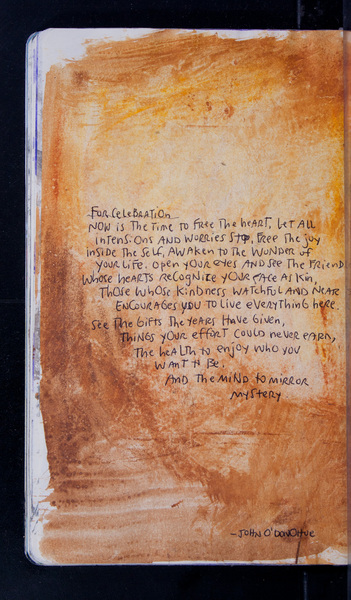 FOR CELEBRATION
NOW IS THE TIME TO FREE THE HEART, LET ALL
INTENSIONS AND WORRIES STOP, FREE THE JOY
INSIDE THE SELF, AWAKEN TO THE WONDER OF
YOUR LIFE. OPEN YOUR EYES AND SEE THE FRIEND
WHOSE HEARTS RECOGNIZE YOUR FACE AS KIN,
THOSE WHOSE KINDNESS WATCHFUL AND NEAR
ENCOURAGES YOU TO LIVE EVERYTHING HERE.
SEE THE GIFTS THE YEARS HAVE GIVEN,
THINGS YOUR EFFORT COULD NEVER EARN,
THE HEALTH TO ENJOY WHO YOU
WANT TO BE,
AND THE MIND TO MIRROR
MYSTERY
-JOHN O'DONOHUE